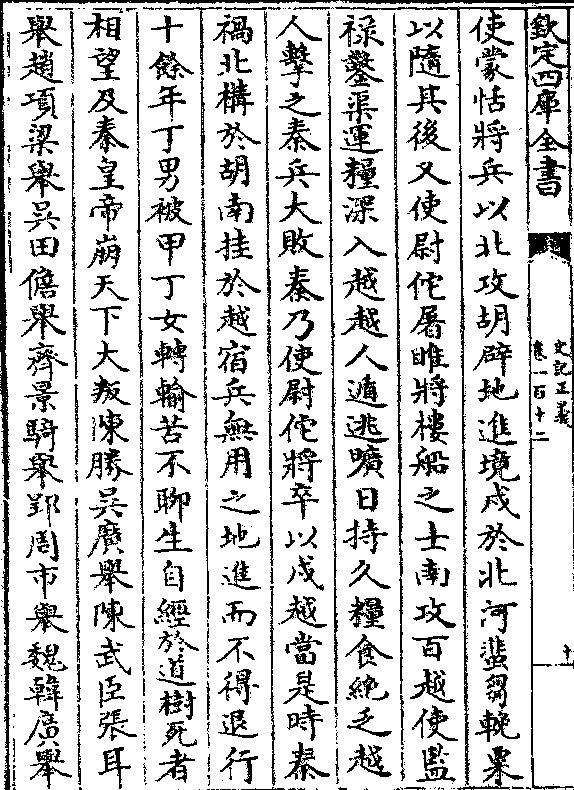 欽定四庫全書
史記正義
卷一百十二
十
使蒙恬將兵以北攻胡辟地進境戍於北河蜚芻輓粟
以隨其後又使尉佗屠睢將樓船之士南攻百越使監
祿鑿渠運糧深入越越人遁逃曠日持久糧食絶乏越
人擊之秦兵大敗秦乃使尉佗將卒以戍越當是時秦
禍北構於胡南挂於越宿兵無用之地進而不得退行
十餘年丁男被甲丁女轉輸苦不聊生自經於道樹死者
相望及秦皇帝崩天下大叛陳勝吳廣舉陳武臣張耳
舉趙項梁舉吳田儋舉齊景駒舉郢周市舉魏韓廣舉